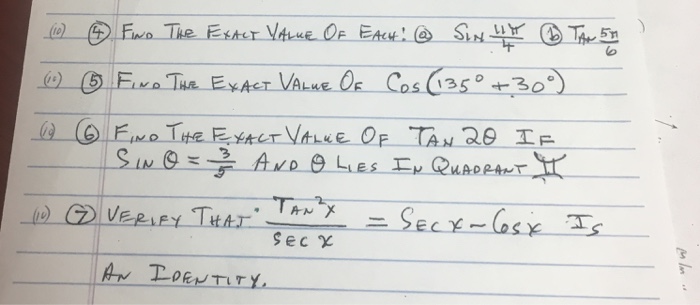 (10) ④ FIND THE EXACT VALUE OF EACH: ⓐ SIN 11π/4 ⓑ TAN 5π/6
(10) ⑤ FIND THE EXACT VALUE OF COS (135° + 30°)
(10) ⑥ FIND THE EXACT VALUE OF TAN 2θ IF
SIN θ = 3/5 AND θ LIES IN QUADRANT II
(10) ⑦ VERIFY THAT: TAN²X / SEC X = SEC X - COS X IS
AN IDENTITY.